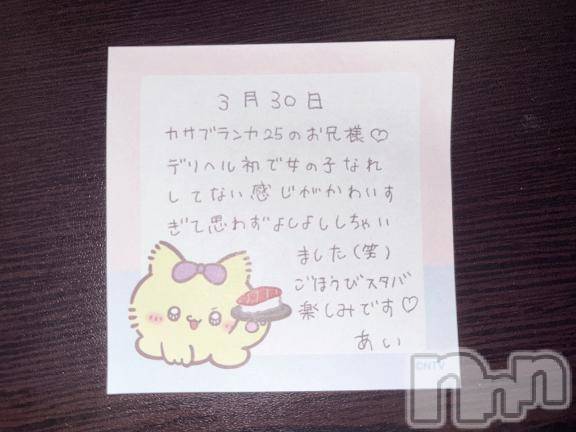 3月30日
カサブランカ25のお兄様♡
デリヘル初で女の子なれ
してない感じがかわいす
ぎて思わずよしよししちゃい
ました(笑)
ごほうびスタバ
楽しみです♡
あい
CNTV
nnn